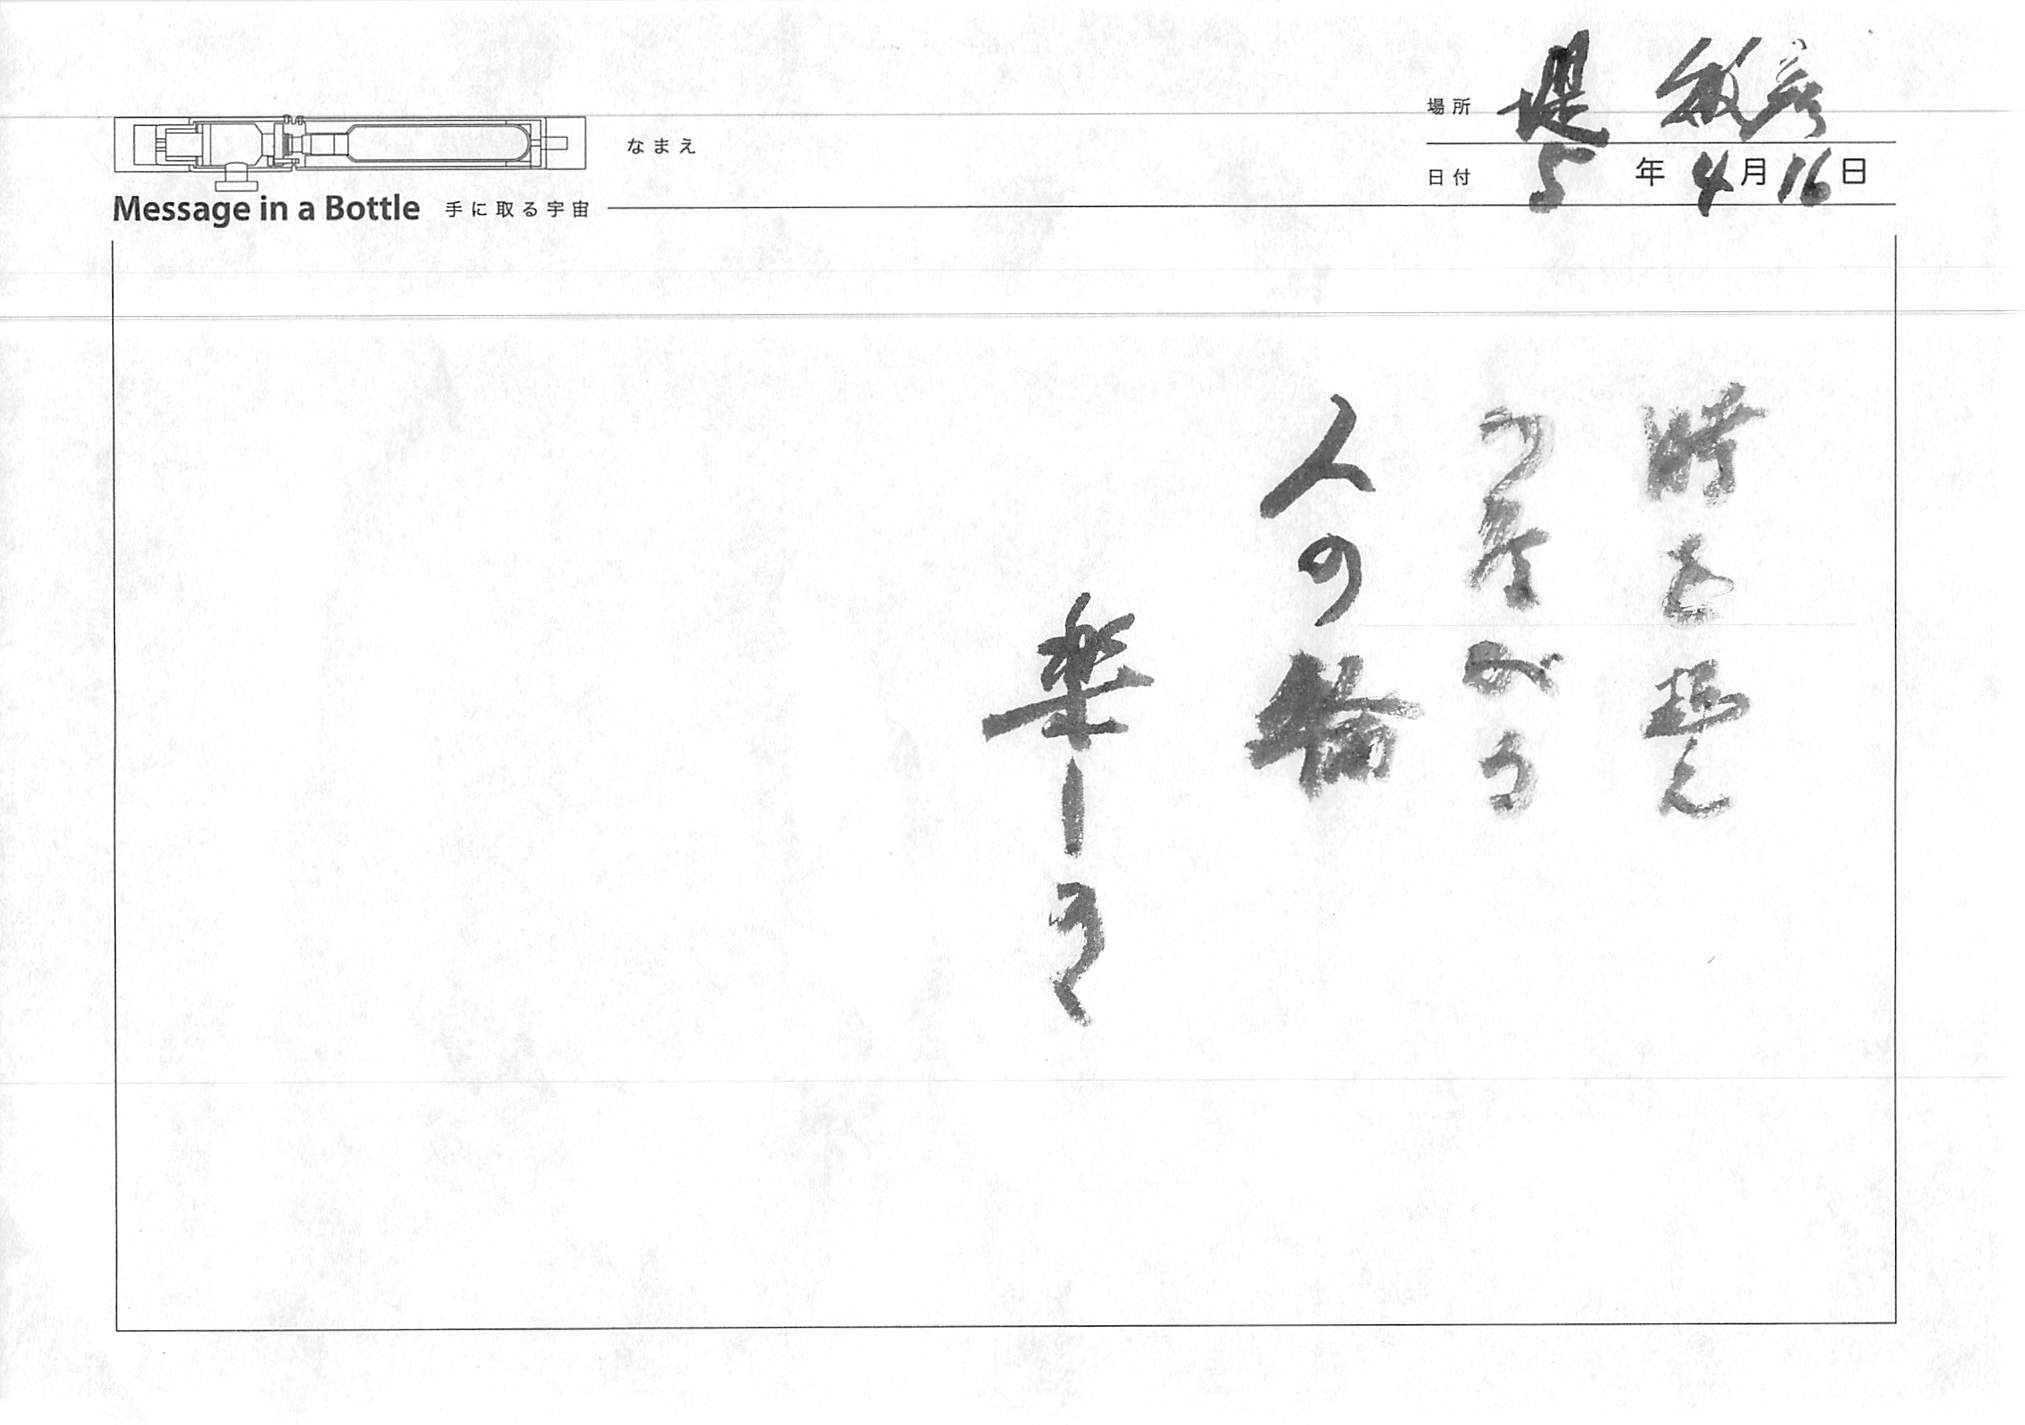 場所 堤 敏彦
なまえ
日付 5年4月16日
Message in a Bottle 手に取る宇宙
時を超え
つながる
人の輪
楽し